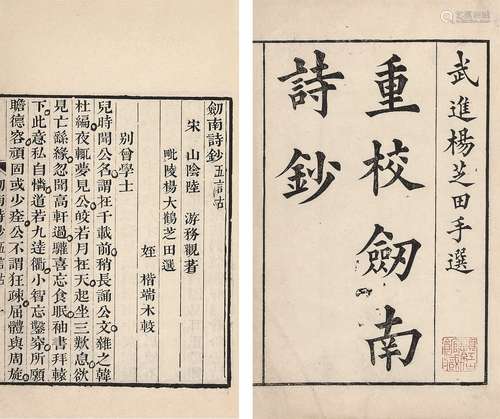 武進楊芝田手選
重校劒南
詩鈔
劒南詩鈔 五言古
宋 山陰陸 游務觀著
毗陵楊大鶴芝田選
姪 楷端木較
别曾學士
兒時聞公名謂在千載前稍長誦公文雜之韓
杜編夜輒夢見公皎若月在天起坐三歎息欲
見亡繇緣忽聞高軒過驩喜忘食眠袖書拜轅
下此意私自憐道若九逵衢小智忘鑿穿所願
瞻德容頑固或少痊公不謂狂疎屈體與周旋